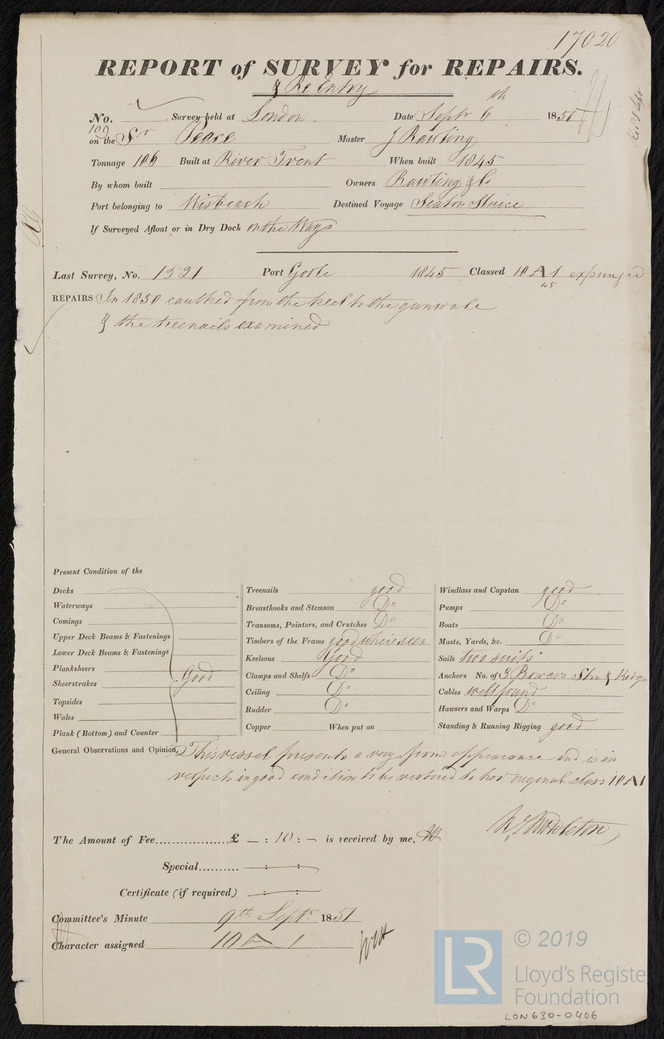 17020
REPORT of SURVEY for REPAIRS.
& Re Entry
No. Survey held at London Date Septr 6th 1851
on the Sr Peace Master J Rawling
Tonnage 106 Built at River Trent When built 1845
By whom built Owners Rawling & Co
Port belonging to Wisbeach Destined Voyage Seaton Sluice
If Surveyed Afloat or in Dry Dock on the Ways
Last Survey, No. 1321 Port Goole 1845 Classed 10 A 1 expunged
45
REPAIRS In 1850 caulked from the keel to the gunwale
& the treenails examined
Present Condition of the
Decks
Waterways
Comings
Upper Deck Beams & Fastenings
Lower Deck Beams & Fastenings
Planksheers
Sheerstrakes
Topsides
Wales
Plank (Bottom) and Counter
Good
Treenails good
Breasthooks and Stemson Do
Transoms, Pointers, and Crutches Do
Timbers of the Frame good where seen
Keelsons Good
Clamps and Shelfs Do
Ceiling Do
Rudder Do
Copper When put on
Windlass and Capstan good
Pumps Do
Boats Do
Masts, Yards, &c. Do
Sails two suits
Anchors No. of 3 Bowers Stm & Kedge
Cables well found
Hawsers and Warps Do
Standing & Running Rigging good
General Observations and Opinion, This vessel presents a very firm appearance and is in
respects in good condition to be restored to her original class 10 A 1
The Amount of Fee £ — : 10 : — is received by me,
Special — : — : —
Certificate (if required) — : — : —
Committee's Minute 9th Septr 1851
Character assigned 10 A 1
LR © 2019
Lloyd's Register
Foundation
LON630-0406